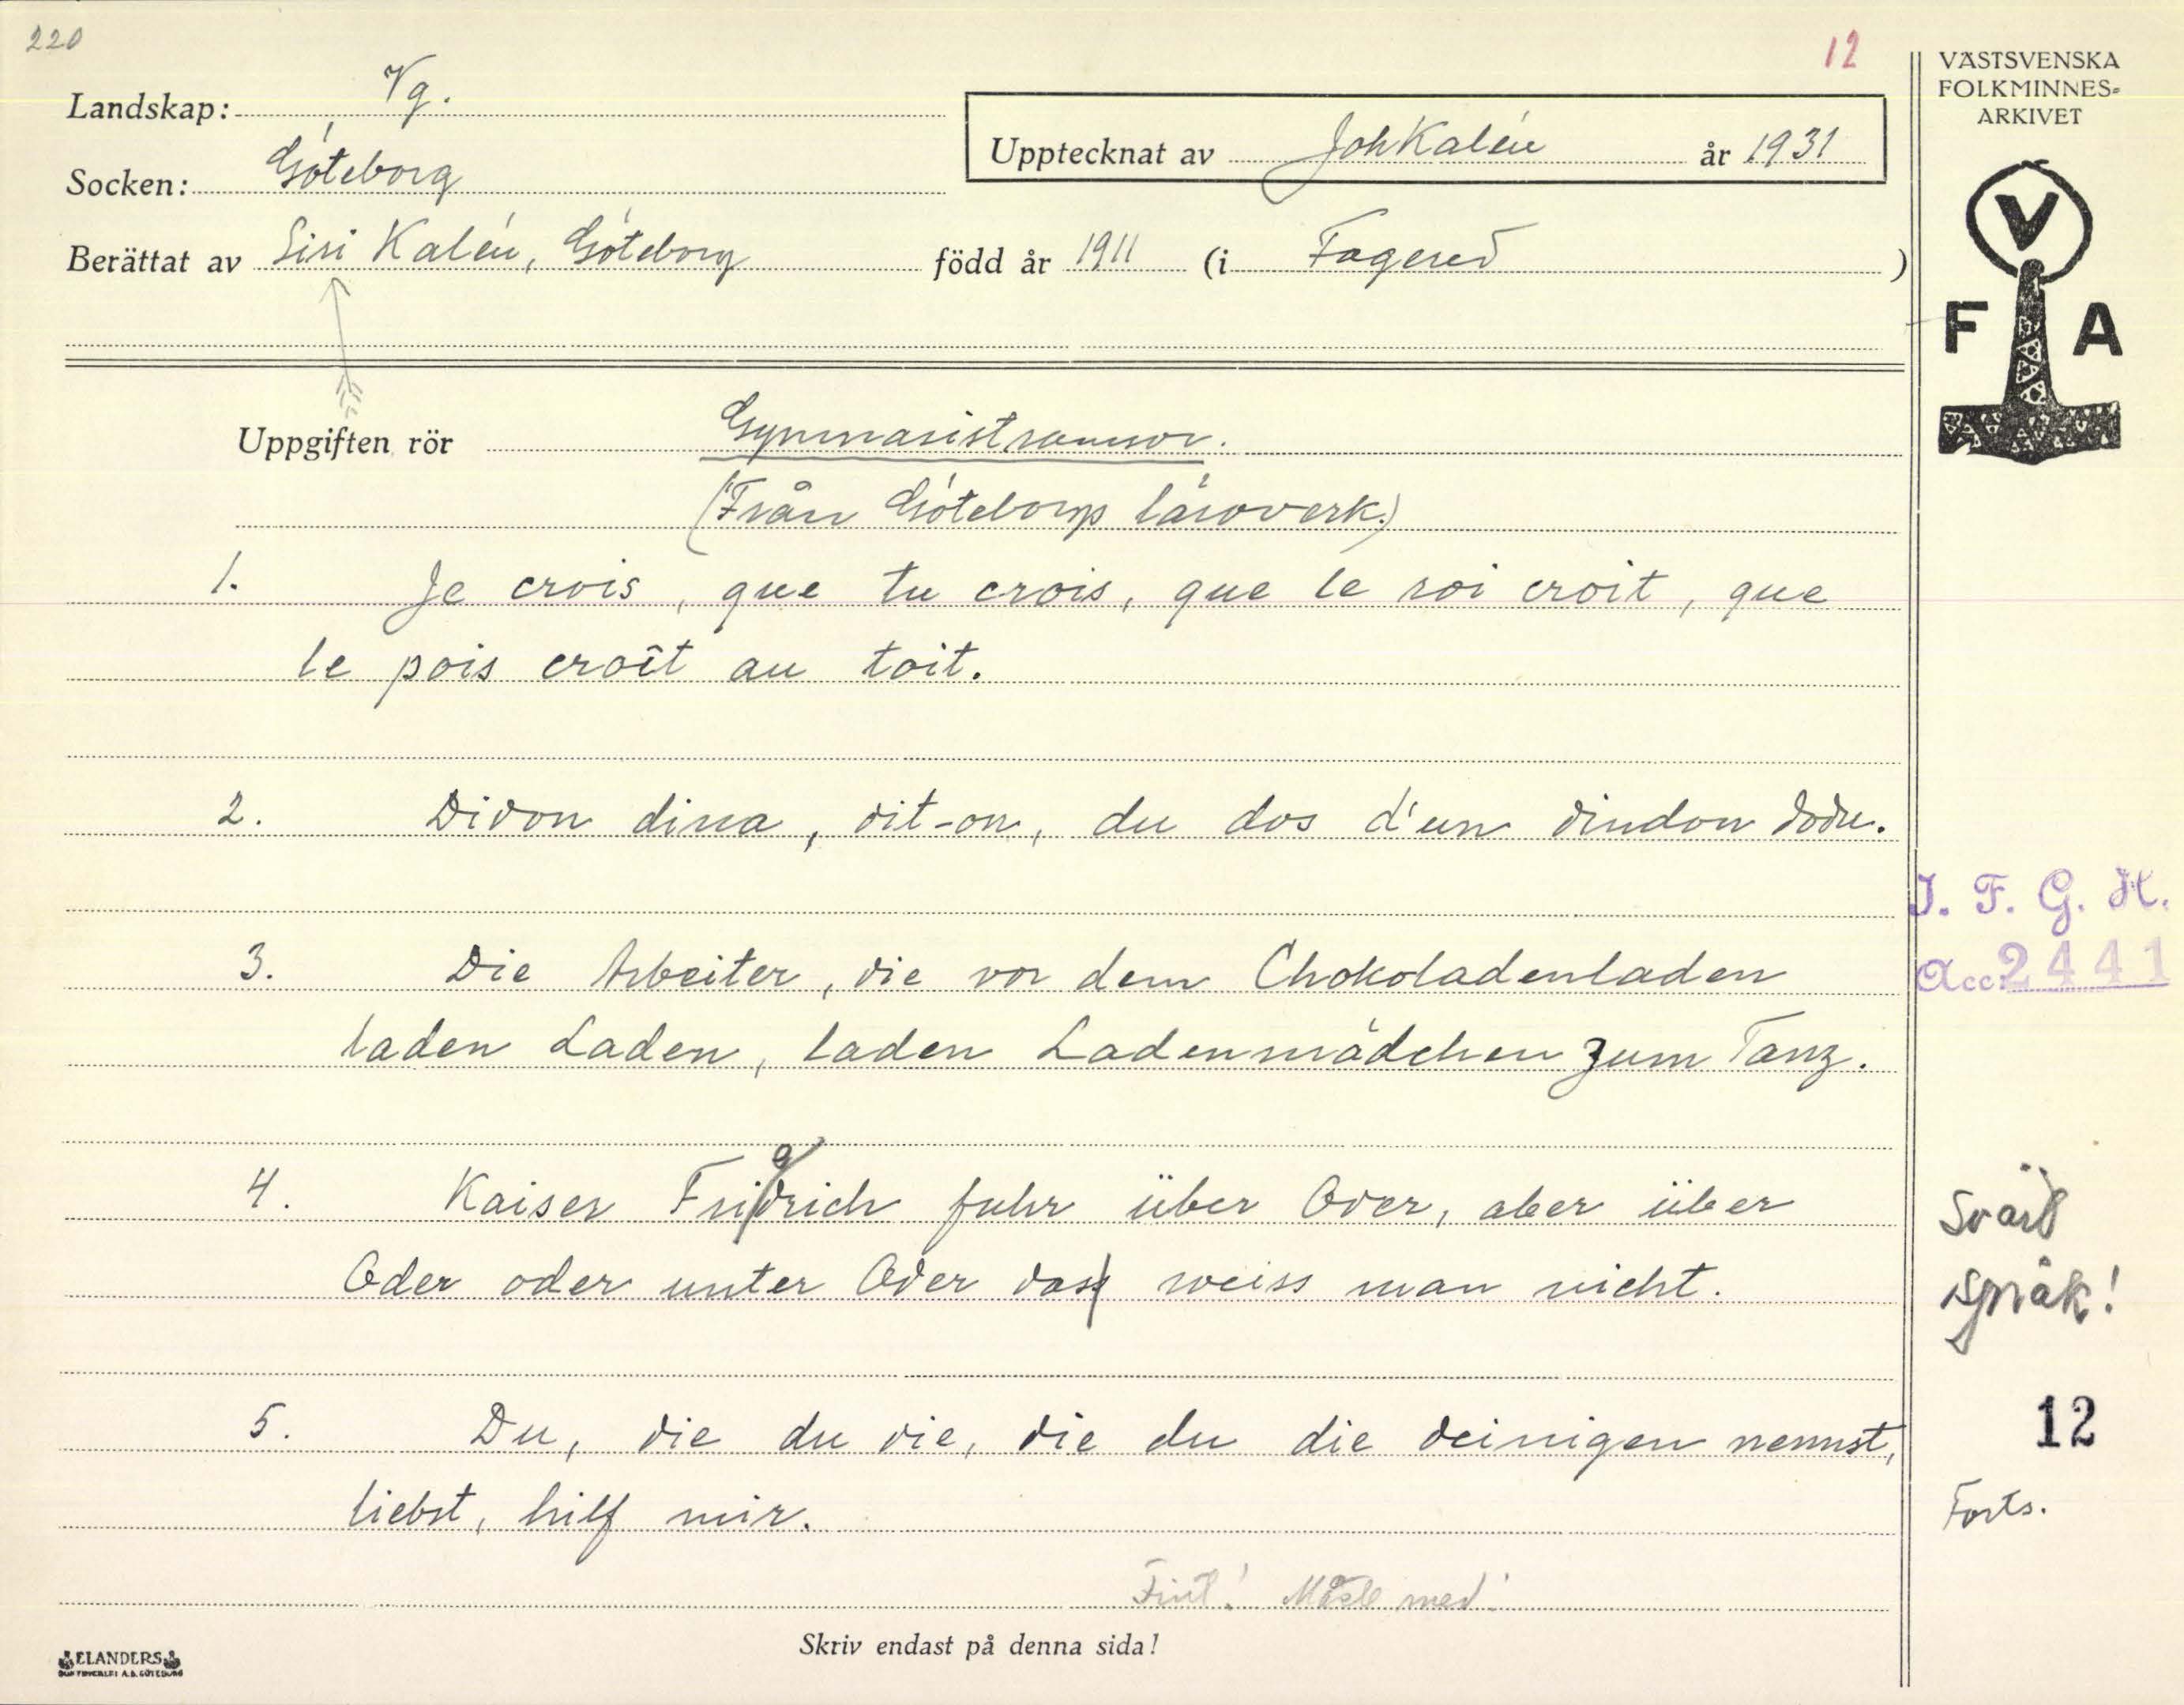 220
12
Landskap: Vg.
Socken: Göteborg
Berättat av Sisi Kalén, Göteborg född år 1911 (i Fagered )
Upptecknat av Joh Kalén år 1931
VÄSTSVENSKA
FOLKMINNES-
ARKIVET
V
F A
Uppgiften rör Gymnasistramsor.
(Från Göteborgs läroverk.)
1. Je crois, que tu crois, que le roi croit, que
le pois croît au toit.
2. Didon dina, dit-on, du dos d'un dindon dodu.
3. Die Arbeiter, die vor dem Chokoladenladen
laden Laden, laden Ladenmädchen zum Tanz.
4. Kaiser Fridrich fuhr über Oder, aber über
Oder oder unter Oder das weiss man nicht.
5. Du, die du die, die du die deinigen nennst,
liebst, hilf mir.
Fint! Måste med!
I. F. G. H.
Acc. 2441
Svårt
språk!
12
Forts.
Skriv endast på denna sida!
ELANDERS